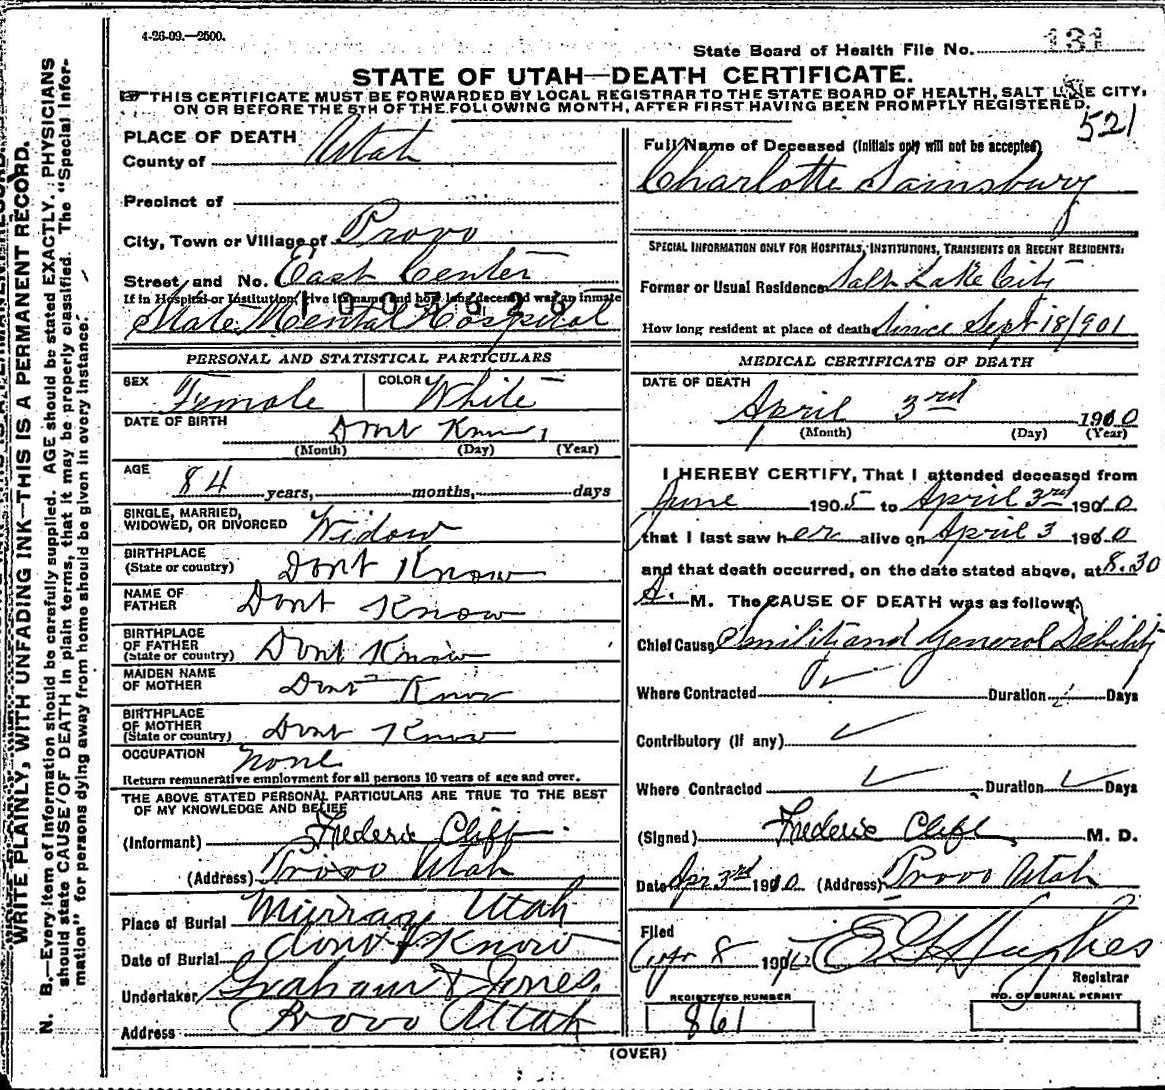 4-26-09.—2500.
State Board of Health File No. 131
STATE OF UTAH—DEATH CERTIFICATE.
THIS CERTIFICATE MUST BE FORWARDED BY LOCAL REGISTRAR TO THE STATE BOARD OF HEALTH, SALT LAKE CITY,
ON OR BEFORE THE 5TH OF THE FOLLOWING MONTH, AFTER FIRST HAVING BEEN PROMPTLY REGISTERED.
521
PLACE OF DEATH
County of Utah
Precinct of
City, Town or Village of Provo
Street and No. East Center
If in Hospital or Institution, give its name and how long deceased was an inmate
State Mental Hospital
PERSONAL AND STATISTICAL PARTICULARS
SEX Female COLOR White
DATE OF BIRTH Dont Know
(Month) (Day) (Year)
AGE
84 years, months, days
SINGLE, MARRIED,
WIDOWED, OR DIVORCED Widow
BIRTHPLACE
(State or country) Dont Know
NAME OF
FATHER Dont Know
BIRTHPLACE
OF FATHER
(State or country) Dont Know
MAIDEN NAME
OF MOTHER Dont Know
BIRTHPLACE
OF MOTHER
(State or country) Dont Know
OCCUPATION None
Return remunerative employment for all persons 10 years of age and over.
THE ABOVE STATED PERSONAL PARTICULARS ARE TRUE TO THE BEST
OF MY KNOWLEDGE AND BELIEF
(Informant) Frederic Clift
(Address) Provo Utah
Place of Burial Murray Utah
Date of Burial dont Know
Undertaker Graham & Jones.
Address Provo Utah
Full Name of Deceased (Initials only will not be accepted)
Charlotte Sainsbury
SPECIAL INFORMATION ONLY FOR HOSPITALS, INSTITUTIONS, TRANSIENTS OR RECENT RESIDENTS:
Former or Usual Residence Salt Lake City
How long resident at place of death Since Sept 18/901
MEDICAL CERTIFICATE OF DEATH
DATE OF DEATH
April 3rd 1910
(Month) (Day) (Year)
I HEREBY CERTIFY, That I attended deceased from
June 1905 to April 3rd 1910
that I last saw her alive on April 3 1910
and that death occurred, on the date stated above, at 8.30
A. M. The CAUSE OF DEATH was as follows:
Chief Cause Senility and General Debility
Where Contracted Duration Days
Contributory (if any)
Where Contracted Duration Days
(Signed) Frederic Clift M. D.
Date Apr 3rd 1910 (Address) Provo Utah
Filed
Apr 8 1910 E G Hughes
Registrar
REGISTERED NUMBER
861
NO. OF BURIAL PERMIT
(OVER)
WRITE PLAINLY, WITH UNFADING INK—THIS IS A PERMANENT RECORD.
N. B.—Every item of information should be carefully supplied. AGE should be stated EXACTLY. PHYSICIANS
should state CAUSE OF DEATH in plain terms, that it may be properly classified. The "Special Infor-
mation" for persons dying away from home should be given in every instance.